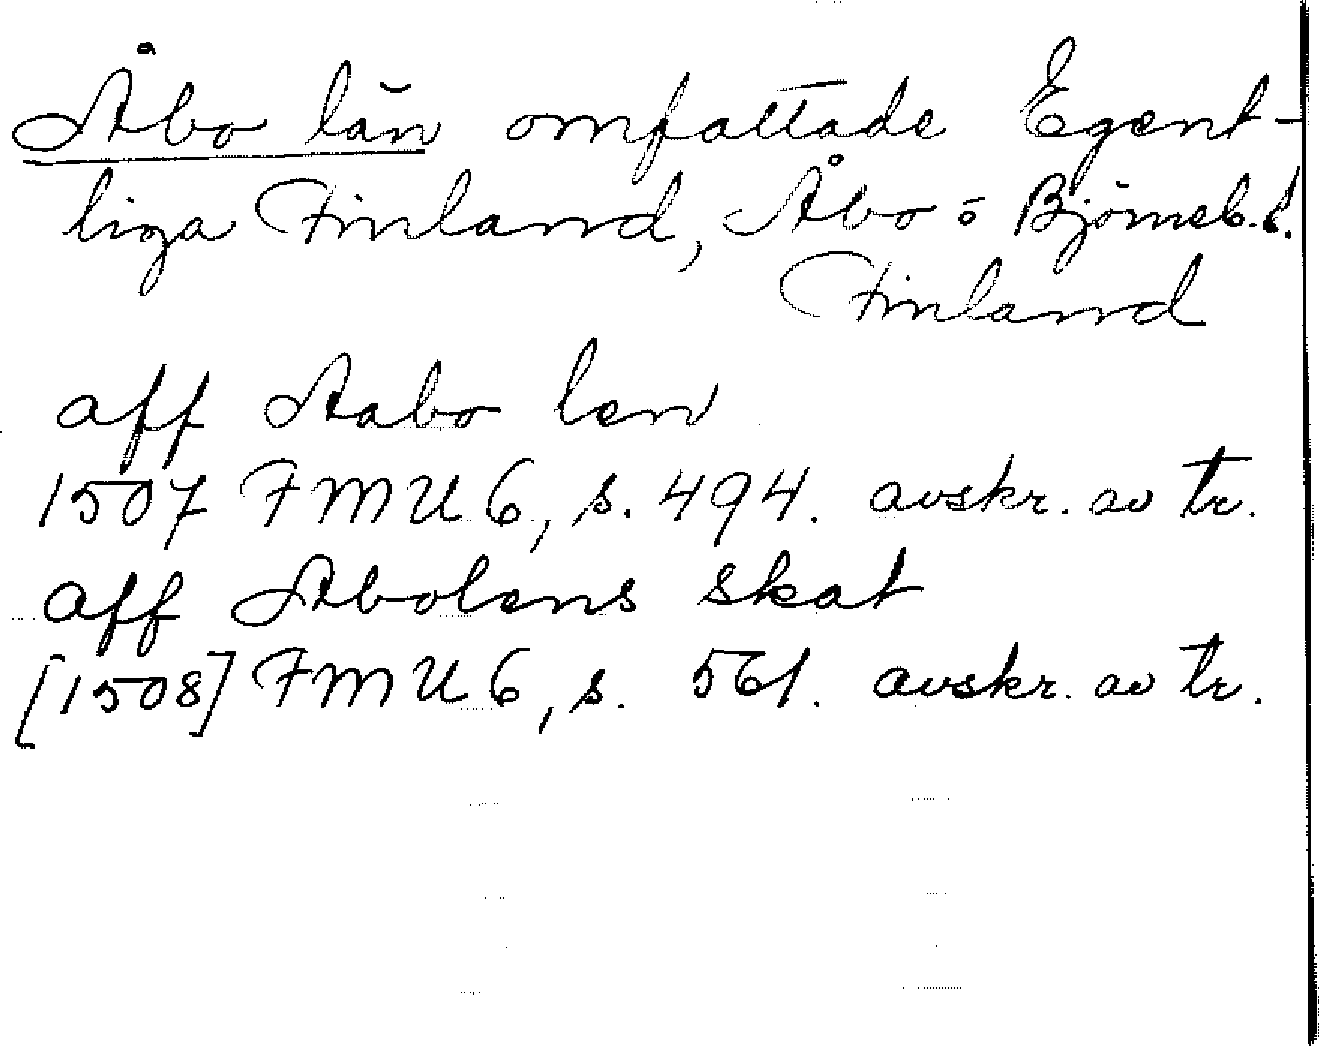 Åbo län omfattade Egent-
liga Finland, Åbo o Björneb. l.
Finland
aff Aabo len
1507 FMU 6, s. 494. avskr. av tr.
aff Abolens skat
[1508] FMU 6, s. 561. avskr. av tr.